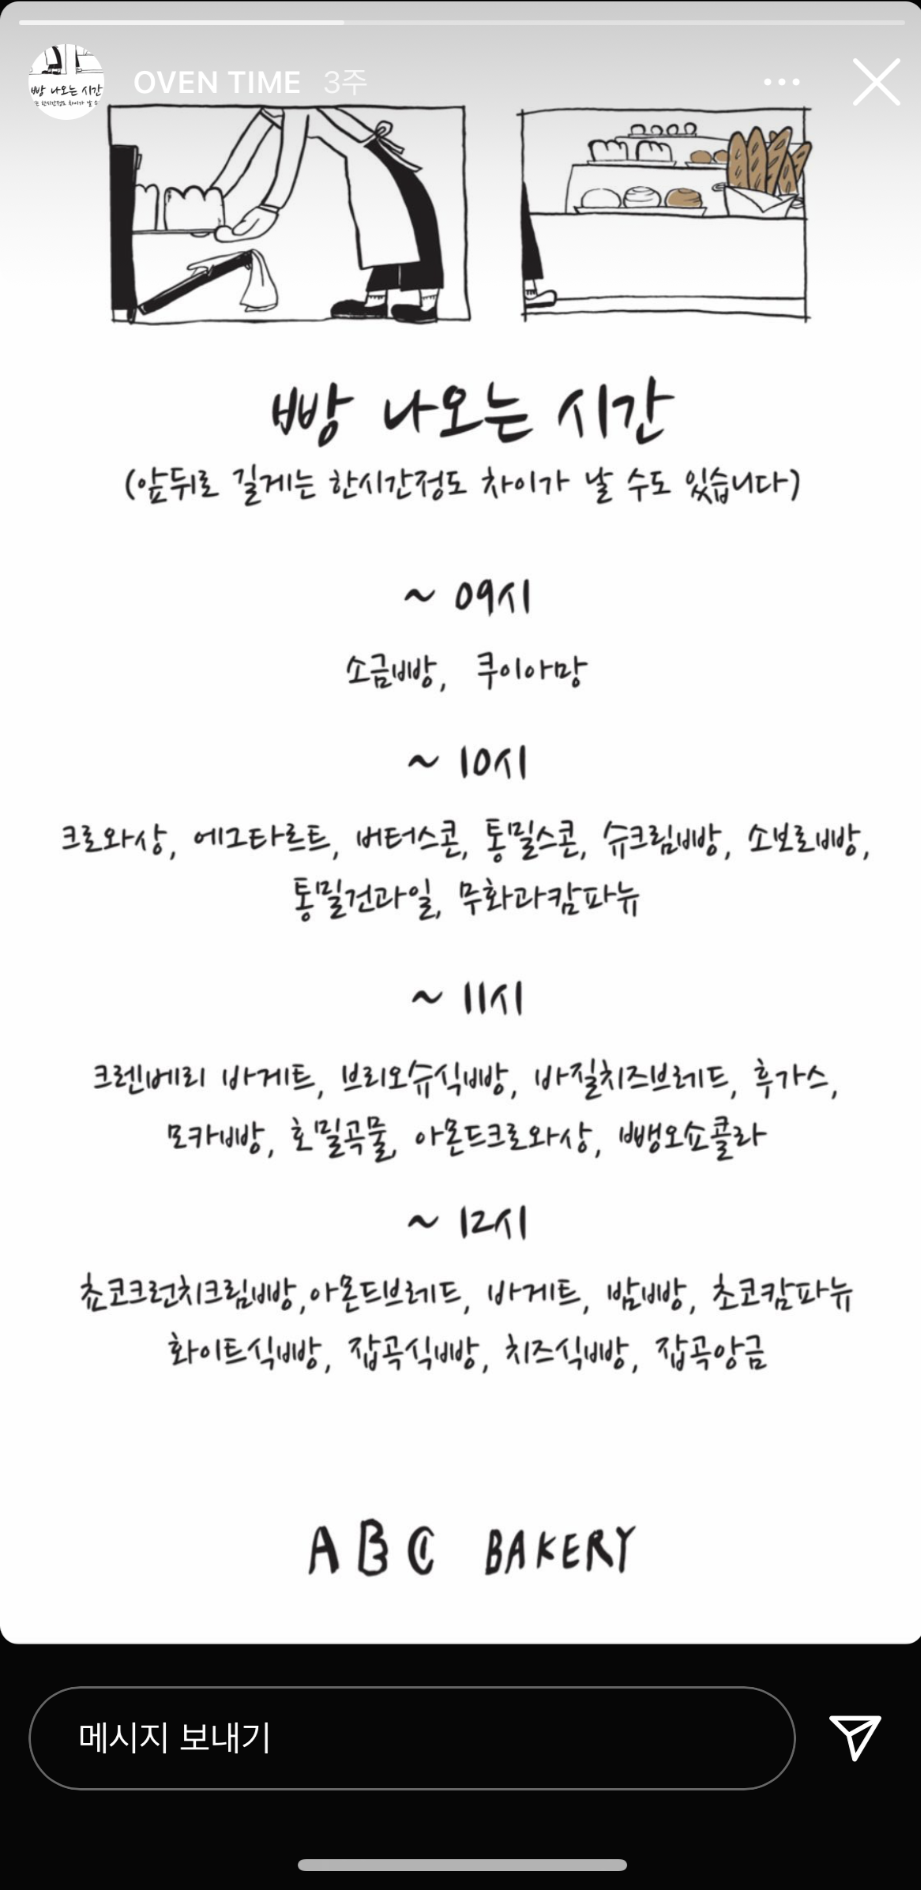 빵 나오는 시간
OVEN TIME 3주
빵 나오는 시간
(앞뒤로 길게는 한시간정도 차이가 날 수도 있습니다)
~ 09시
소금빵, 쿠이아망
~ 10시
크로와상, 에그타르트, 버터스콘, 통밀스콘, 슈크림빵, 소보로빵,
통밀건과일, 무화과캄파뉴
~ 11시
크렌베리 바게트, 브리오슈식빵, 바질치즈브레드, 후가스,
모카빵, 호밀곡물, 아몬드크로와상, 빵오쇼콜라
~ 12시
쵸코크런치크림빵,아몬드브레드, 바게트, 밤빵, 초코캄파뉴
화이트식빵, 잡곡식빵, 치즈식빵, 잡곡앙금
ABC BAKERY
메시지 보내기